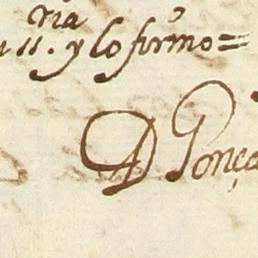 ria
11. y lo firmo=
D Gonça